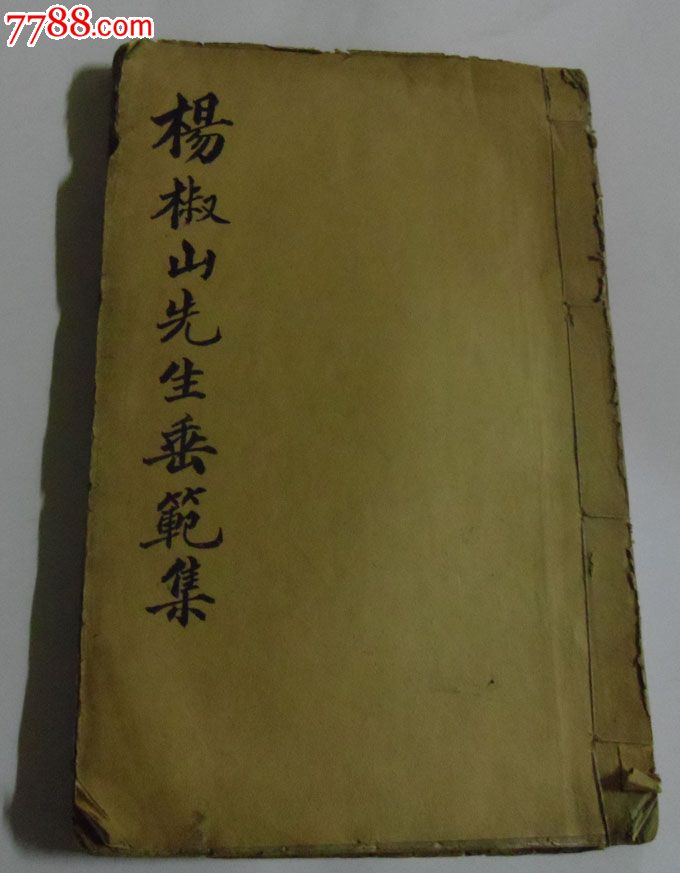 7788.com
楊椒山先生垂範集